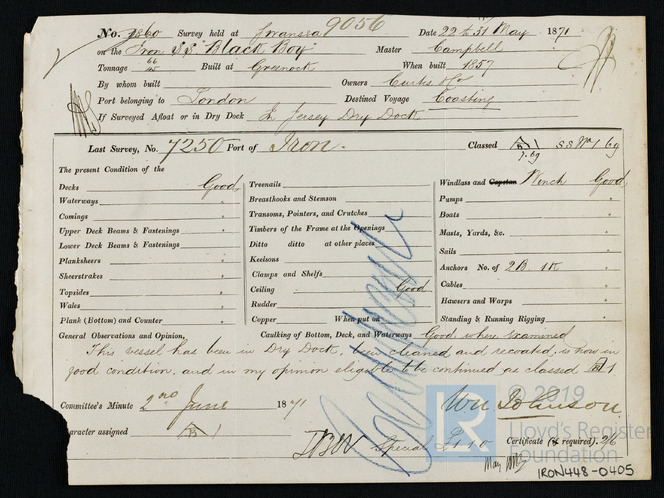 No. 7860 Survey held at Swansea 9056 Date 22 to 31 May 1871
on the Iron SS "Black Boy" Master Campbell
Tonnage 66/45 Built at Greenock When built 1857
By whom built Owners Curtis & Co
Port belonging to London Destined Voyage Coasting
If Surveyed Afloat or in Dry Dock In Jersey Dry Dock
Last Survey, No. 7250 Port of Iron. Classed A 1 S S No 1 69
7.69
The present Condition of the
Decks Good
Waterways "
Comings "
Upper Deck Beams & Fastenings "
Lower Deck Beams & Fastenings "
Planksheers "
Sheerstrakes "
Topsides "
Wales "
Plank (Bottom) and Counter "
Treenails
Breasthooks and Stemson
Transoms, Pointers, and Crutches
Timbers of the Frame at the Openings
Ditto ditto at other places
Keelsons
Clamps and Shelfs
Ceiling Good
Rudder "
Copper When put on
Windlass and Capstan Winch Good
Pumps "
Boats "
Masts, Yards, &c. "
Sails "
Anchors No. of 2B 1K "
Cables "
Hawsers and Warps "
Standing & Running Rigging "
General Observations and Opinion, Caulking of Bottom, Deck, and Waterways Good where examined
This vessel has been in Dry Dock, been cleaned and recoated, is now in
good condition, and in my opinion eligible to be continued as classed A 1
Committee's Minute 2nd June 1871 Wm Johnson
Character assigned A 1
Special £1 1 0 Certificate (if required). 2/6
© 2019
LR
Lloyd's Register
Foundation
IRON448-0405